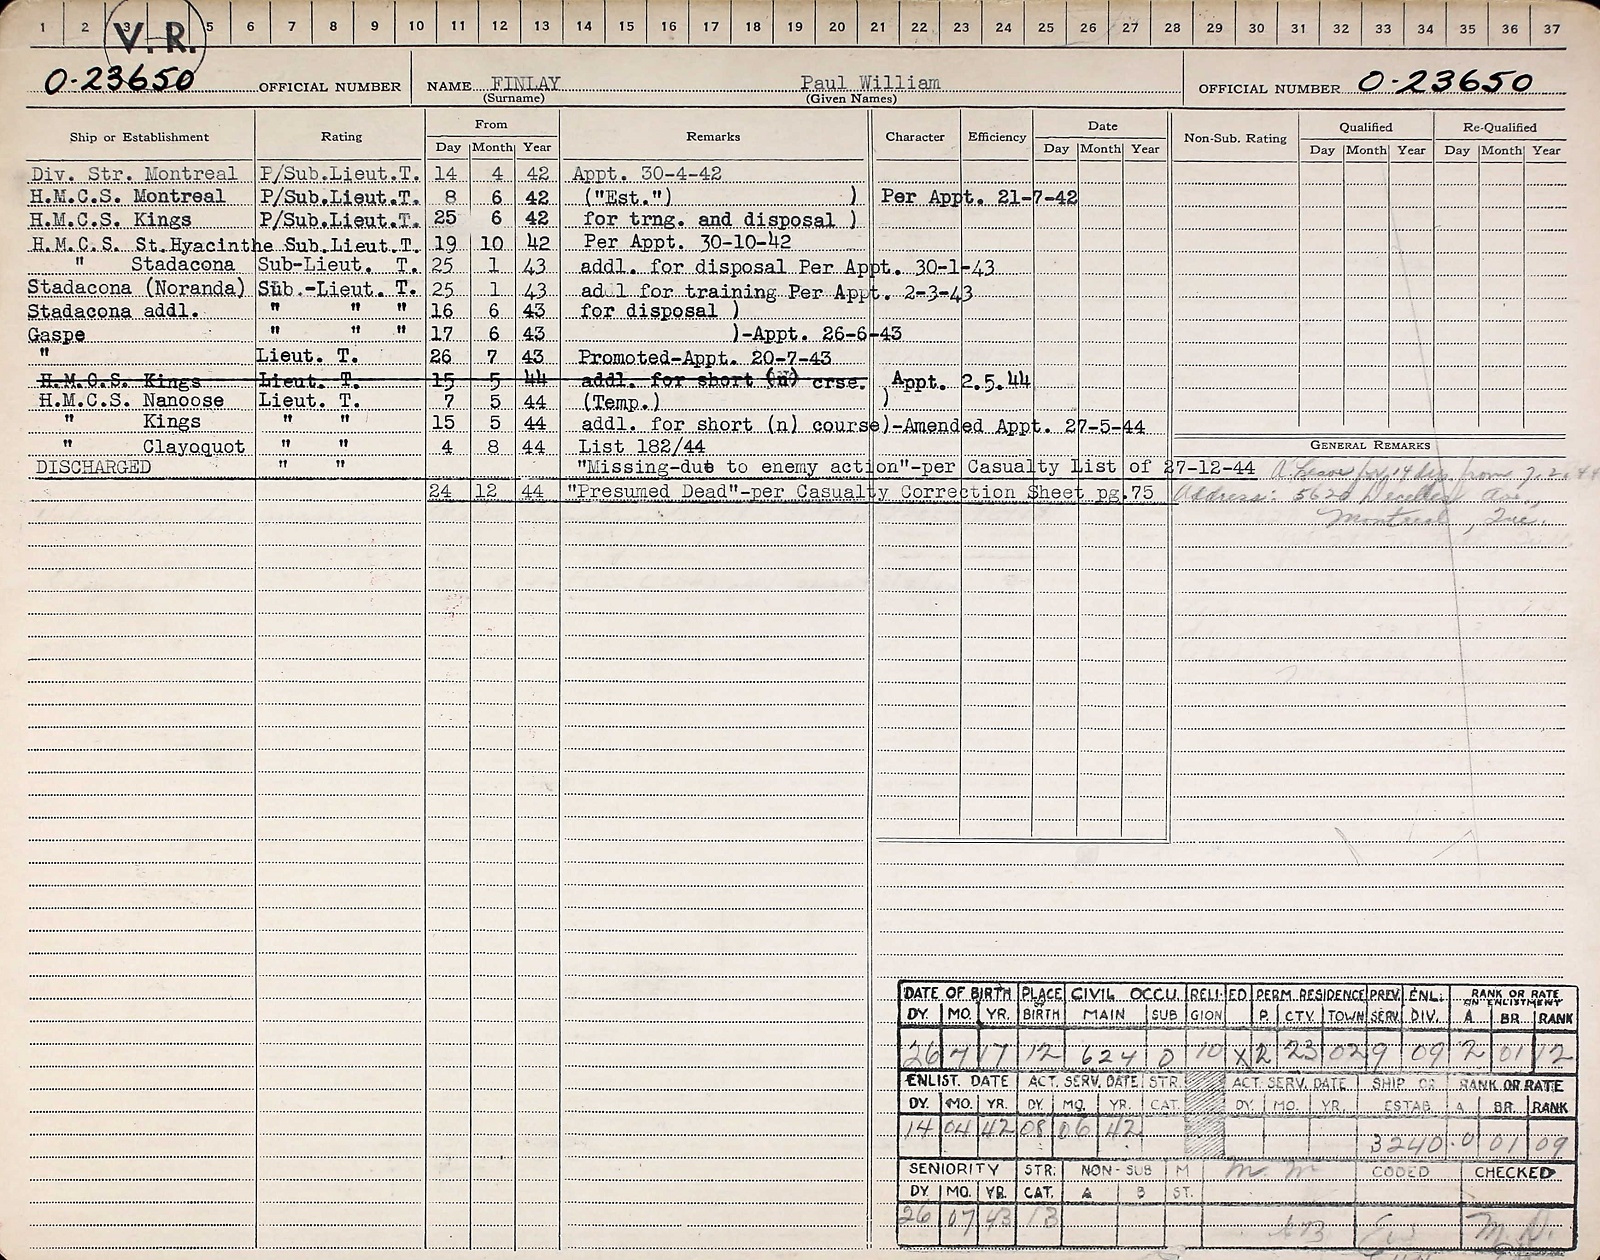 1 2 3 4 5 6 7 8 9 10 11 12 13 14 15 16 17 18 19 20 21 22 23 24 25 26 27 28 29 30 31 32 33 34 35 36 37
V.R.
O-23650 OFFICIAL NUMBER NAME FINLAY Paul William OFFICIAL NUMBER O-23650
(Surname) (Given Names)
Ship or Establishment Rating From Remarks Character Efficiency Date Non-Sub. Rating Qualified Re-Qualified
Day Month Year Day Month Year Day Month Year Day Month Year
Div. Str. Montreal P/Sub.Lieut.T. 14 4 42 Appt. 30-4-42
H.M.C.S. Montreal P/Sub.Lieut.T. 8 6 42 ("Est.") ) Per Appt. 21-7-42
H.M.C.S. Kings P/Sub.Lieut.T. 25 6 42 for trng. and disposal )
H.M.C.S. St.Hyacinthe Sub.Lieut.T. 19 10 42 Per Appt. 30-10-42
" Stadacona Sub-Lieut. T. 25 1 43 addl. for disposal Per Appt. 30-1-43
Stadacona (Noranda) Sub.-Lieut. T. 25 1 43 ad l for training Per Appt. 2-3-43
Stadacona addl. " " " 16 6 43 for disposal )
Gaspe " " " 17 6 43 )-Appt. 26-6-43
" Lieut. T. 26 7 43 Promoted-Appt. 20-7-43
H.M.C.S. Kings Lieut. T. 15 5 44 addl. for short (n) crse. Appt. 2.5.44
H.M.C.S. Nanoose Lieut. T. 7 5 44 (Temp.) )
" Kings " " 15 5 44 addl. for short (n) course)-Amended Appt. 27-5-44
" Clayoquot " " 4 8 44 List 182/44
GENERAL REMARKS
DISCHARGED " " "Missing-due to enemy action"-per Casualty List of 27-12-44 Leave for 14 days from
24 12 44 "Presumed Dead"-per Casualty Correction Sheet pg.75 Address: Ave,
Montreal, Que.
DATE OF BIRTH PLACE CIVIL OCCU. RELI- ED PERM. RESIDENCE PREV. ENL. RANK OR RATE ON ENLISTMENT
DY. MO. YR. BIRTH MAIN SUB GION P. CTY. TOWN SERV. DIV. A BR. RANK
26 7 17 12 624 0 10 X 2 23 02 9 09 2 01 12
ENLIST. DATE ACT. SERV. DATE STR. ACT. SERV. DATE SHIP OR RANK OR RATE
DY. MO. YR. DY. MO. YR. CAT. DY. MO. YR. ESTAB. A. BR. RANK
14 04 42 08 06 42 3240 0 01 09
SENIORITY STR. NON-SUB M CODED CHECKED
DY. MO. YR. CAT. A B ST.
26 07 43 13